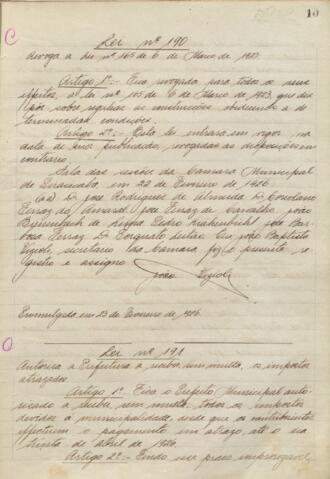 10
C
Lei nº 190
Revoga a Lei nº 165 de 6 de Março de 1923
Artigo 1º:- Fica revogada para todos os seus
effeitos, a lei nº 165 de 6 de Março de 1923, que dis
põe sobre regalias às construcções obedecendo a de
terminadas condições.
Artigo 2º:- Esta lei entrará em vigor na
data de sua publicação, revogadas as disposições em
contrario.
Sala das sessões da Camara Municipal
de Piracicaba, em 22 de Fevereiro de 1926.
(aa) Dr. Jose Rodrigues de Almeida, Dr. Coriolano
Ferraz do Amaral, Jose Ferraz de Carvalho, João
Pedro Jose Bar
bosa Ferraz, Dr. Torquato Leitão. Eu João Baptista
Vizioli, secretario da Camara fiz o presente, o
registro e assigno.
João Vizioli
Promulgada em 23 de Fevereiro de 1926.
C
Lei nº 191
Autorisa a Prefeitura a receber sem multa, os impostos
atrazados.
Artigo 1º:- Fica o Prefeito Municipal auto-
risado a receber, sem multa, todos os impostos
devidos a municipalidade, desde que os contribuintes
effectuem o pagamento em atrazo, até o dia
trinta de Abril de 1926.
Artigo 2º:- Findo esse praso improrogavel,